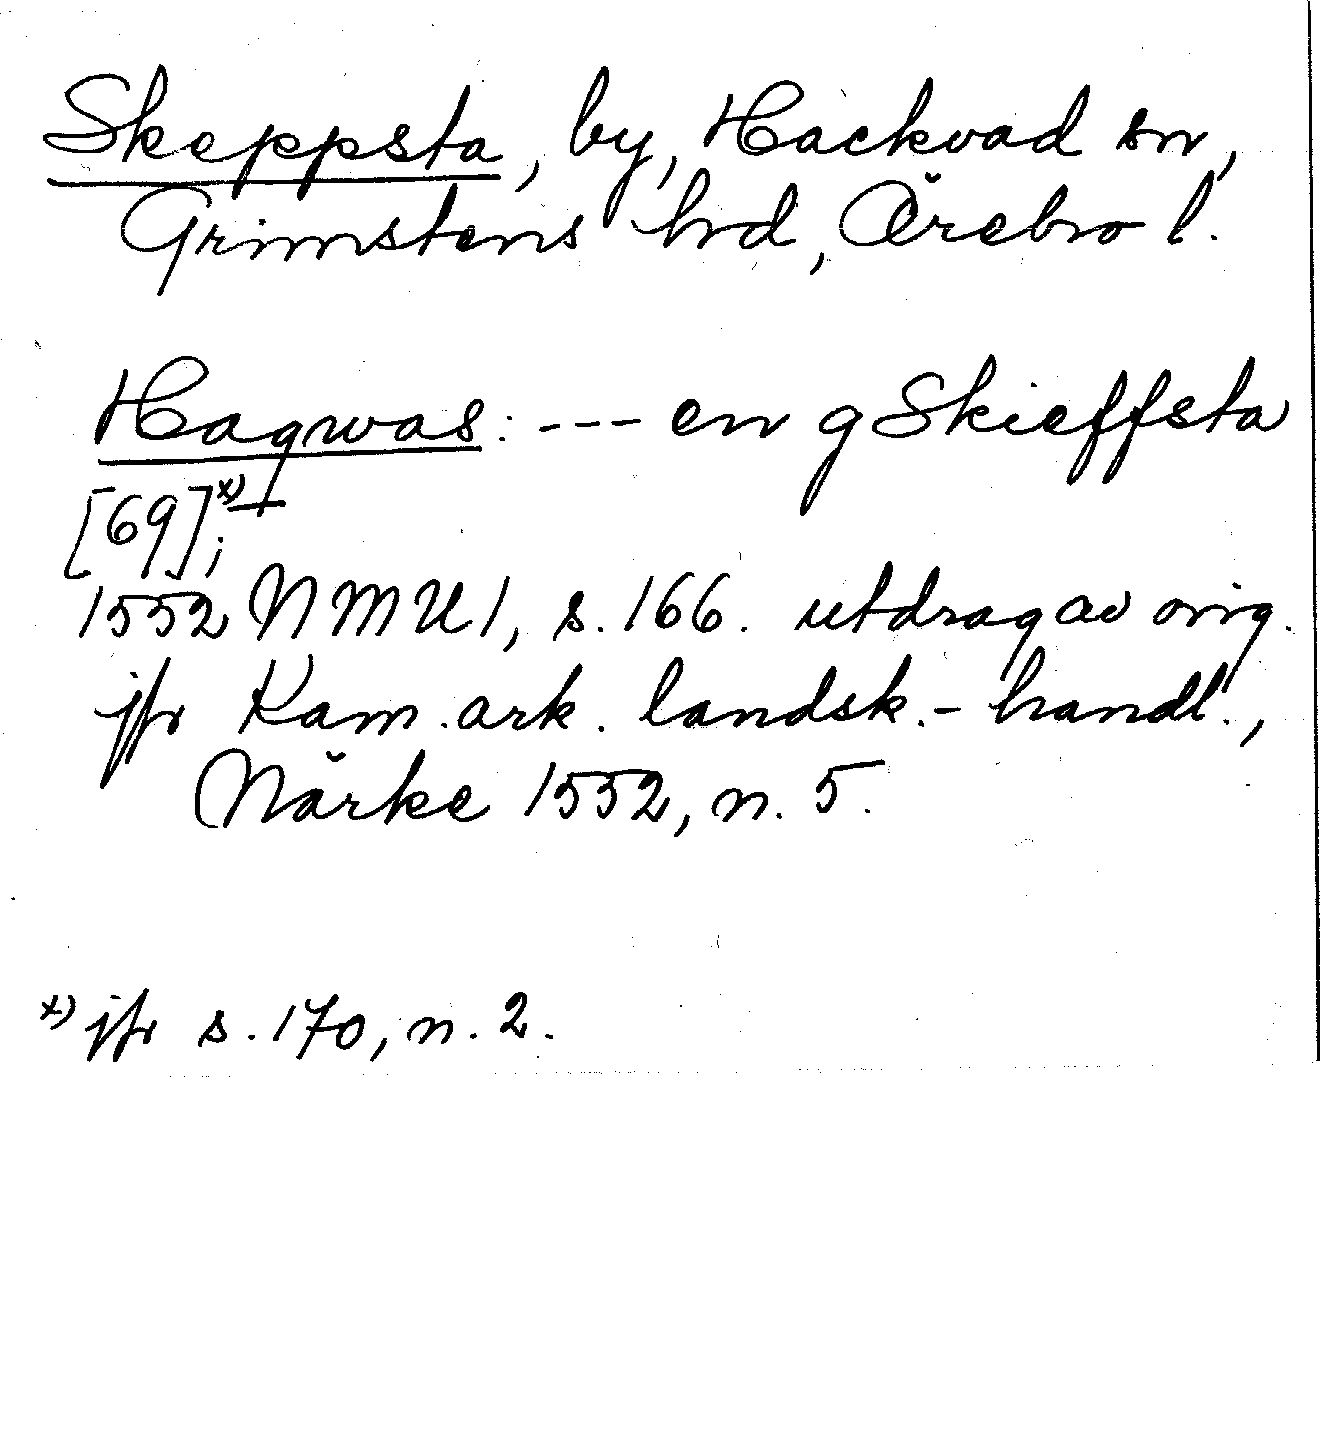 Skeppsta, by, Hackvad sn,
Grimstens hd, Örebro l.
Hagwas: --- en g Skieffsta
[69];x)
1552 NMU 1, s. 166. utdrag av orig.
jfr Kam.ark. landsk.-handl.,
Närke 1552, n. 5.
x) jfr s. 170, n. 2.